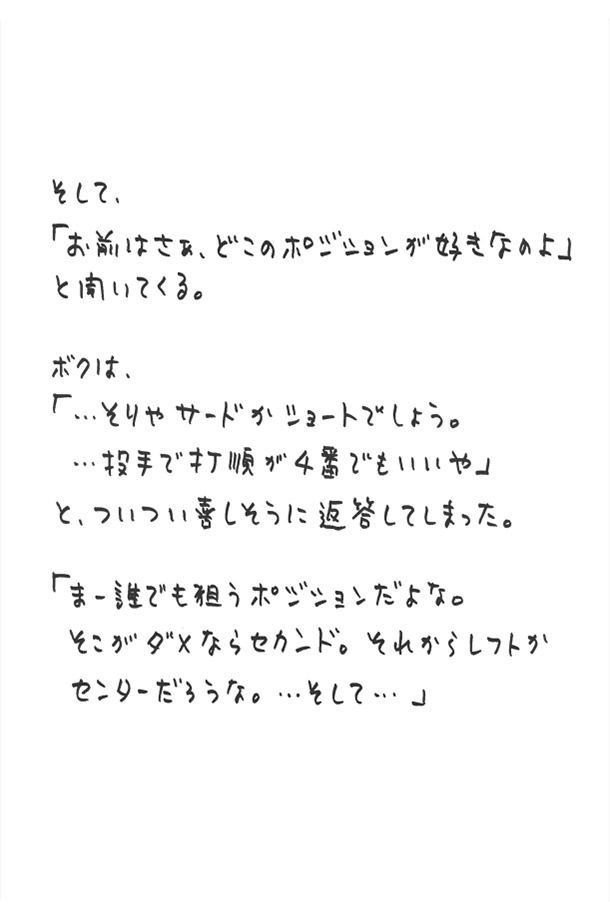 そして、
「お前はさぁ、どこのポジションが好きなのよ」
と聞いてくる。
ボクは、
「…そりゃサードかショートでしょう。
…投手で打順が4番でもいいや」
と、ついつい喜しそうに返答してしまった。
「まー誰でも狙うポジションだよな。
そこがダメならセカンド。それからレフトか
センターだろうな。…そして…」